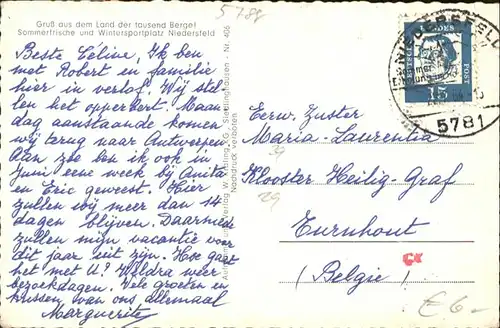 Gruß aus dem Land der tausend Berge!
Sommerfrische und Wintersportplatz Niedersfeld
5788
Beste Céline, Ik ben
met Robert en familie
hier in verlof. Wij stel-
len het opperbest. Maan
dag aanstaande komen
wij terug naar Antwerpen.
zoo ben ik ook in
Juni eene week bij Anita
en Eric geweest. Hier
zullen wij meer dan 14
dagen blijven. Daarmede
zullen mijn vacantie voor
dit jaar uit zijn. Hoe gaat
het met U? Weldra weer
bezoekdagen. Vele groeten en
kussen van ons allemaal
Marguerite
Nr. 406
Nachdruck verboten
NIEDERSFELD
5781
DEUTSCHE BUNDESPOST
15
Eerw. Zuster
Maria-Laurentia
Klooster Heilig-Graf
Turnhout
(Belgie)
29
€ 6-